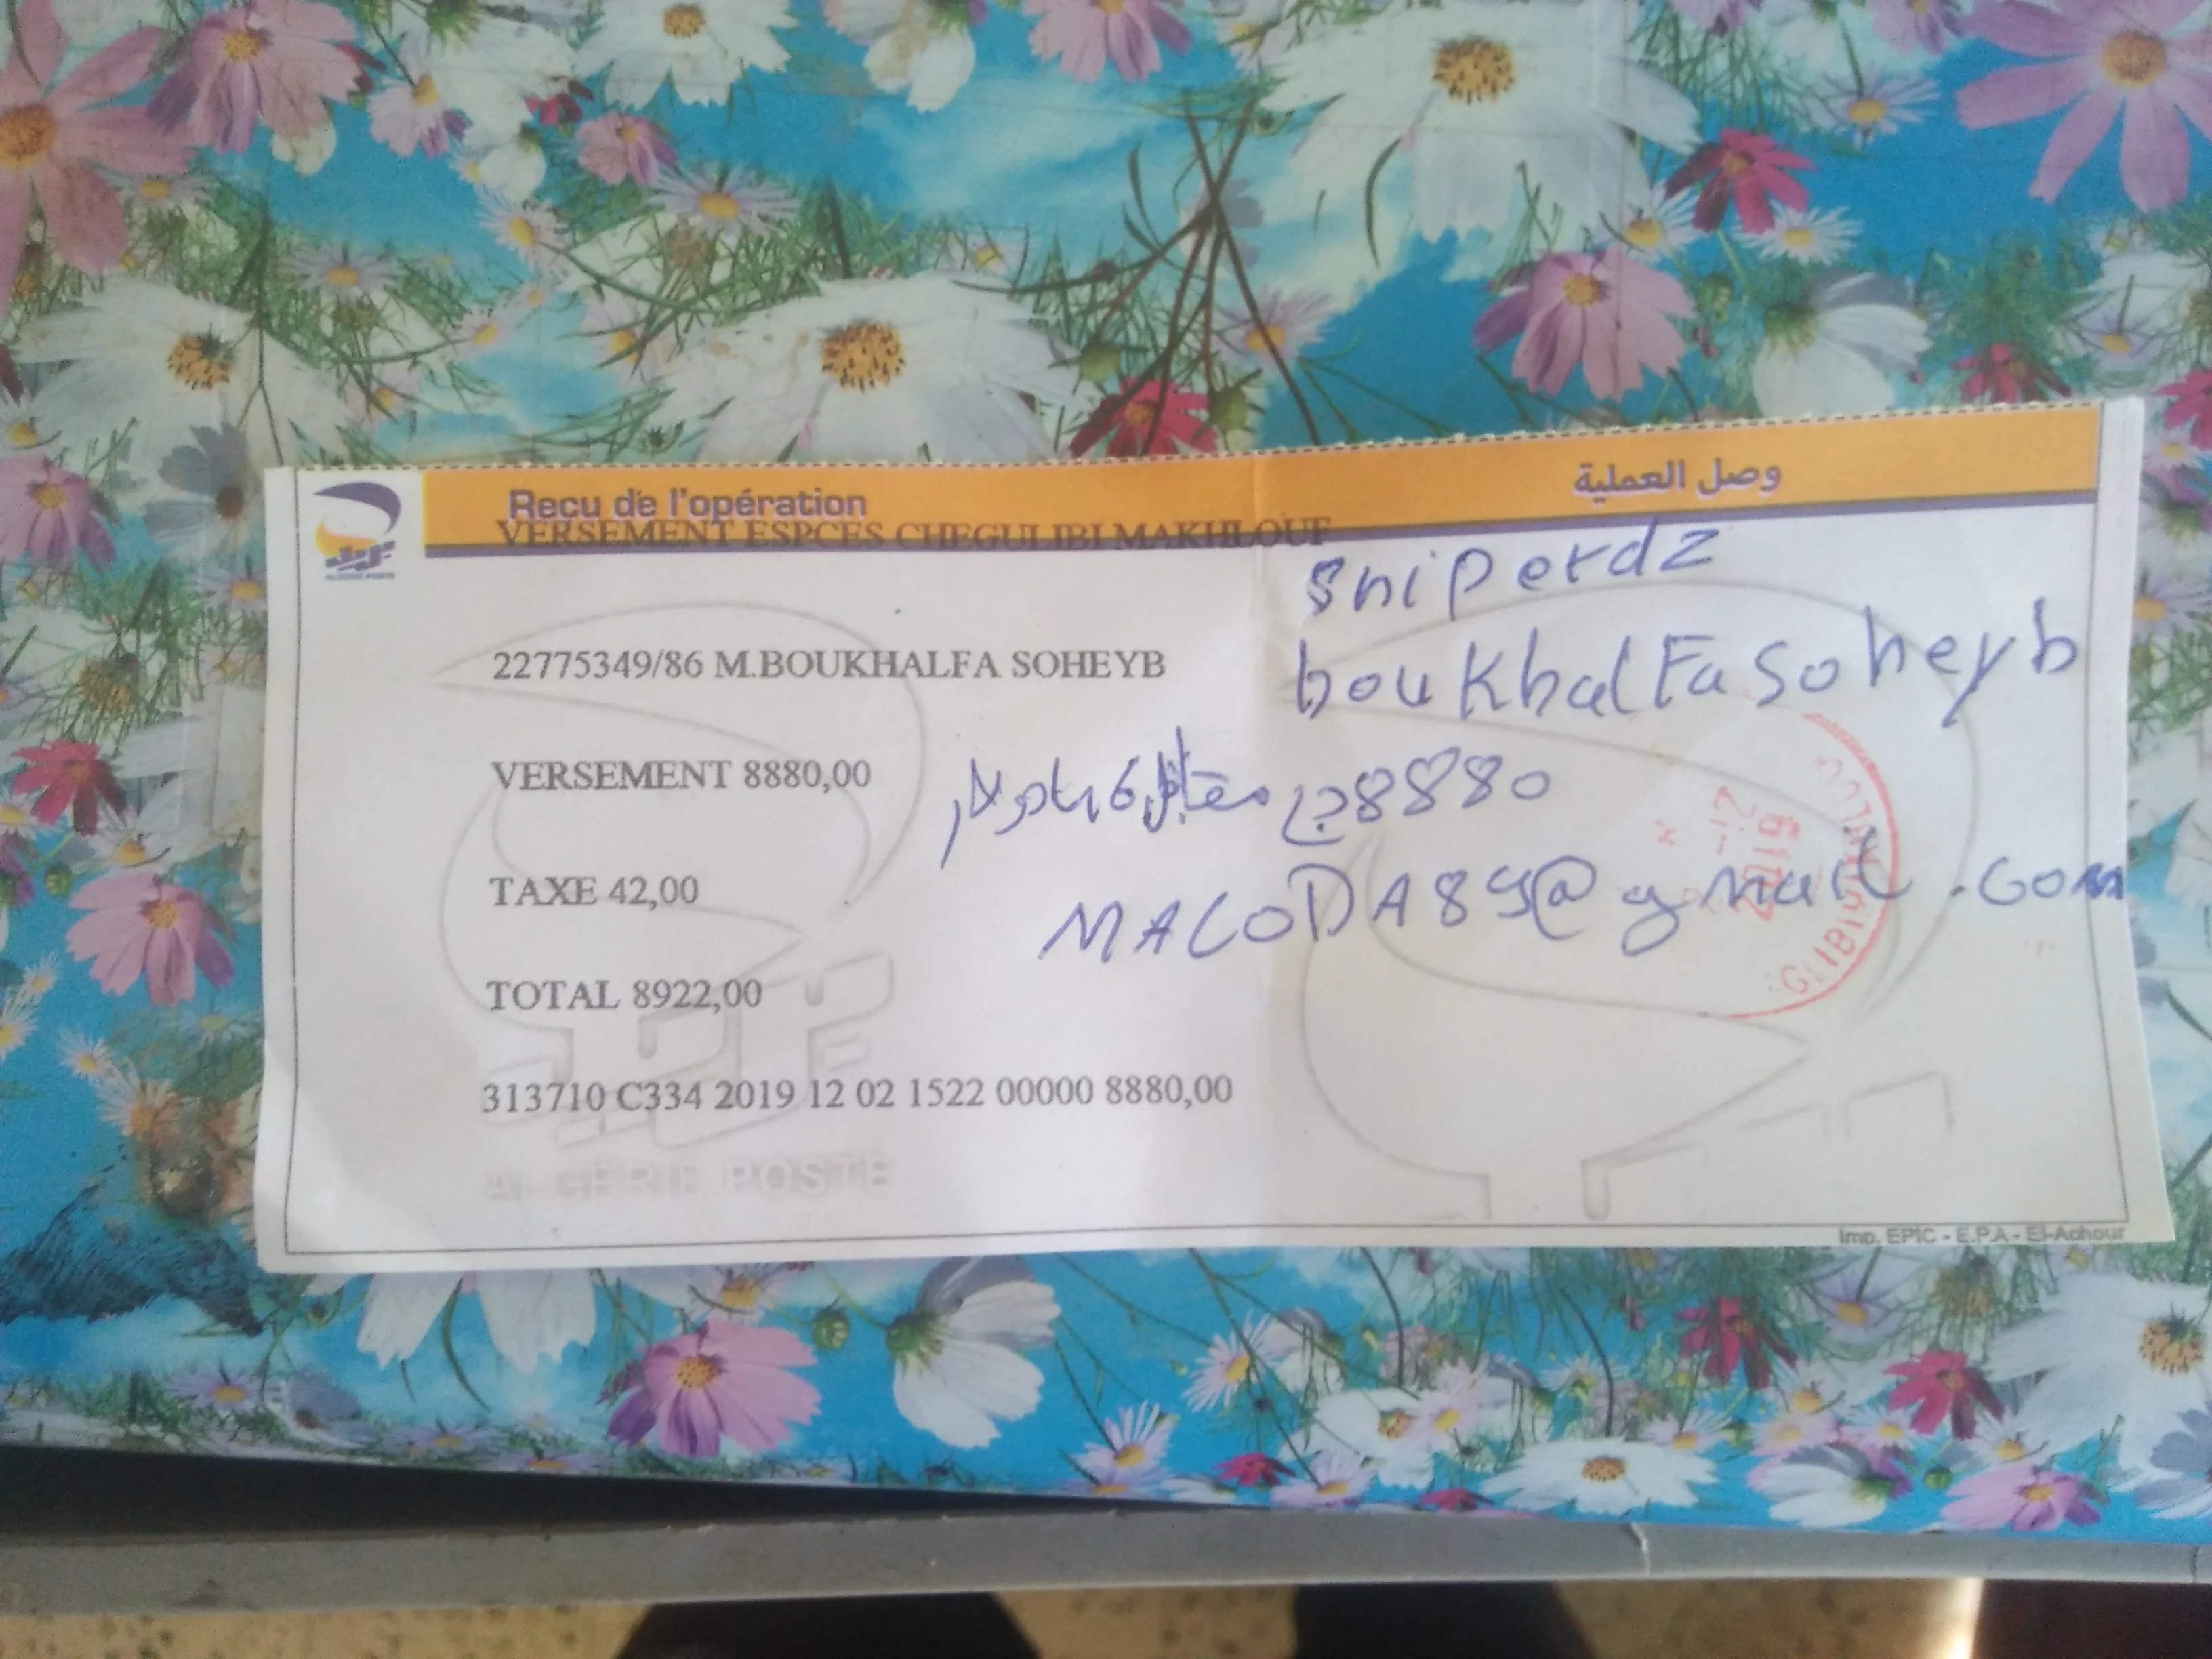 Recu de l'opération
وصل العملية
VERSEMENT ESPCES CHEGULIBI MAKHLOUF
sniperdz
22775349/86 M.BOUKHALFA SOHEYB
boukhalFa soheyb
VERSEMENT 8880,00
8880 دج مقابل 6 دولار
TAXE 42,00
MACODA89@gmail.com
TOTAL 8922,00
2019
313710 C334 2019 12 02 1522 00000 8880,00
ALGERIE POSTE
Imp. EPIC - E.P.A - El-Achour